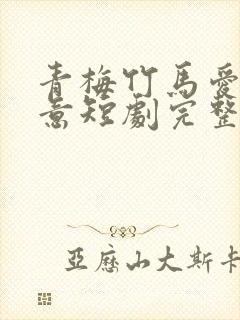 青梅竹馬愛
意短劇完整
亞歷山大斯卡